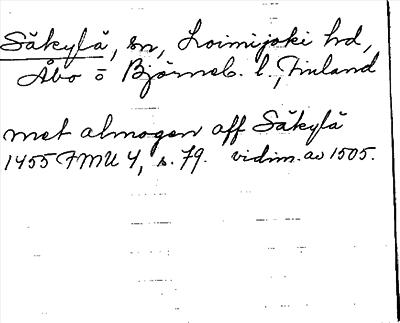 Säkylä, sn, Loimijoki hd,
Åbo o Björneb. l., Finland
met almogen aff Säkylä
1455 FMU 4, s. 79. vidim. av 1505.